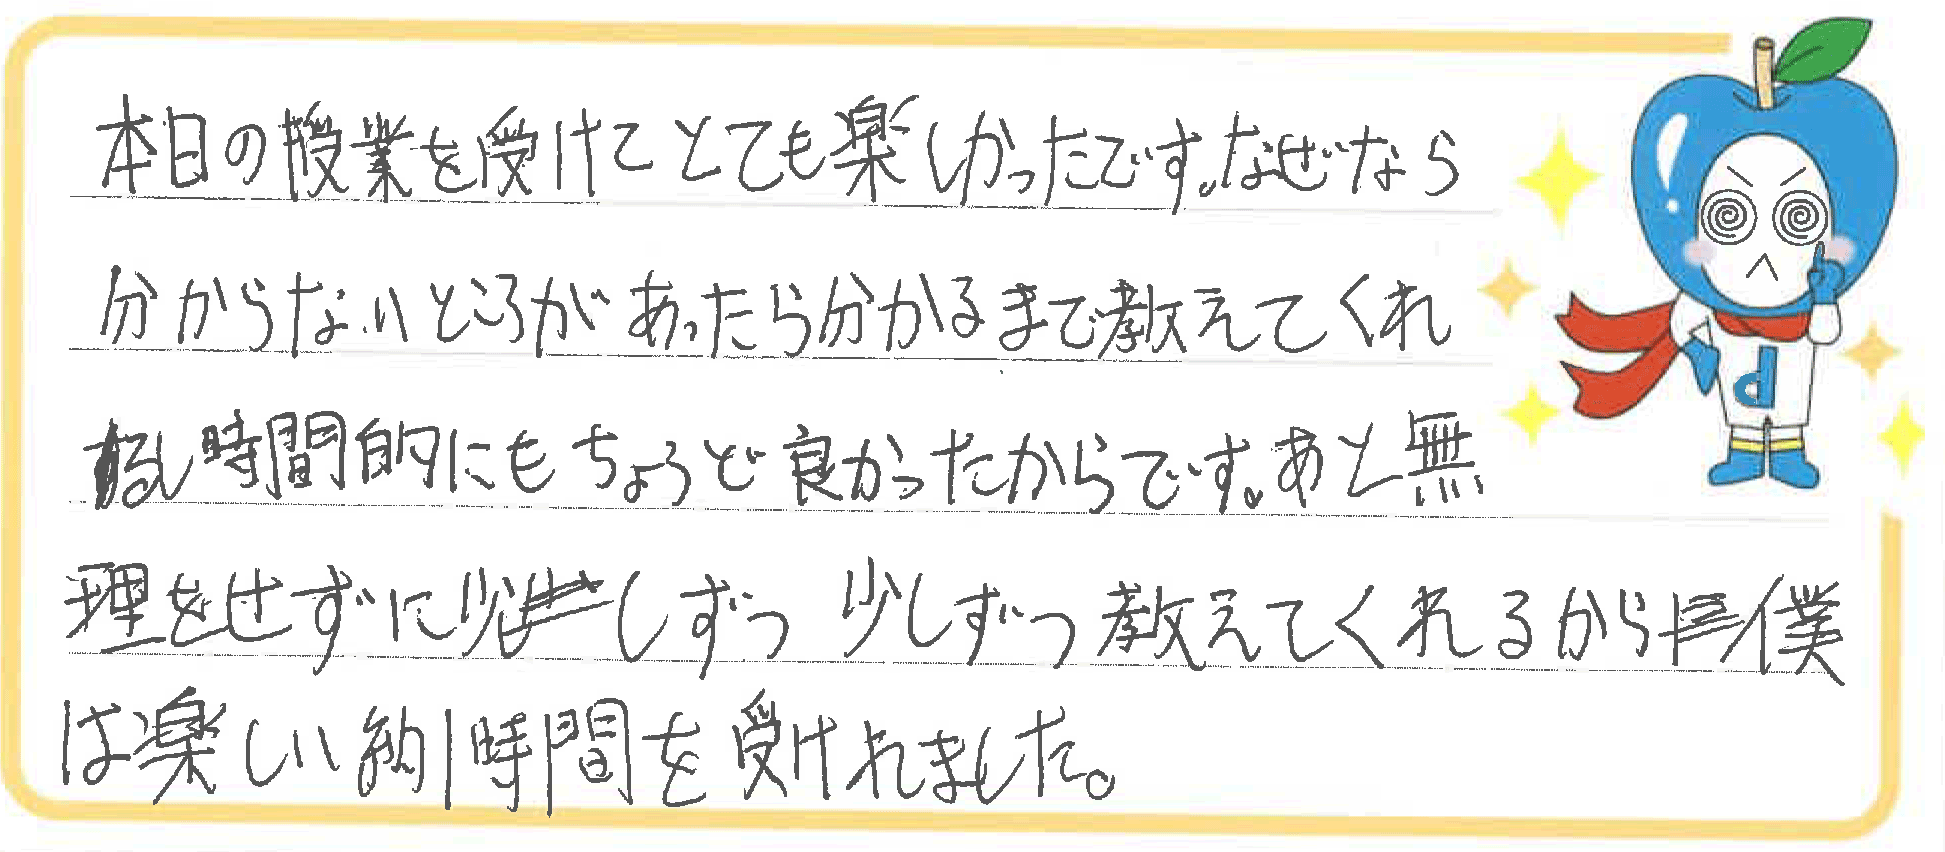 本日の授業を受けてとても楽しかったです。なぜなら
分からないところがあったら分かるまで教えてくれ
るし時間的にもちょうど良かったからです。あと無
理をせずに少しずつ少しずつ教えてくれるから僕
は楽しい約1時間を受けれました。
d